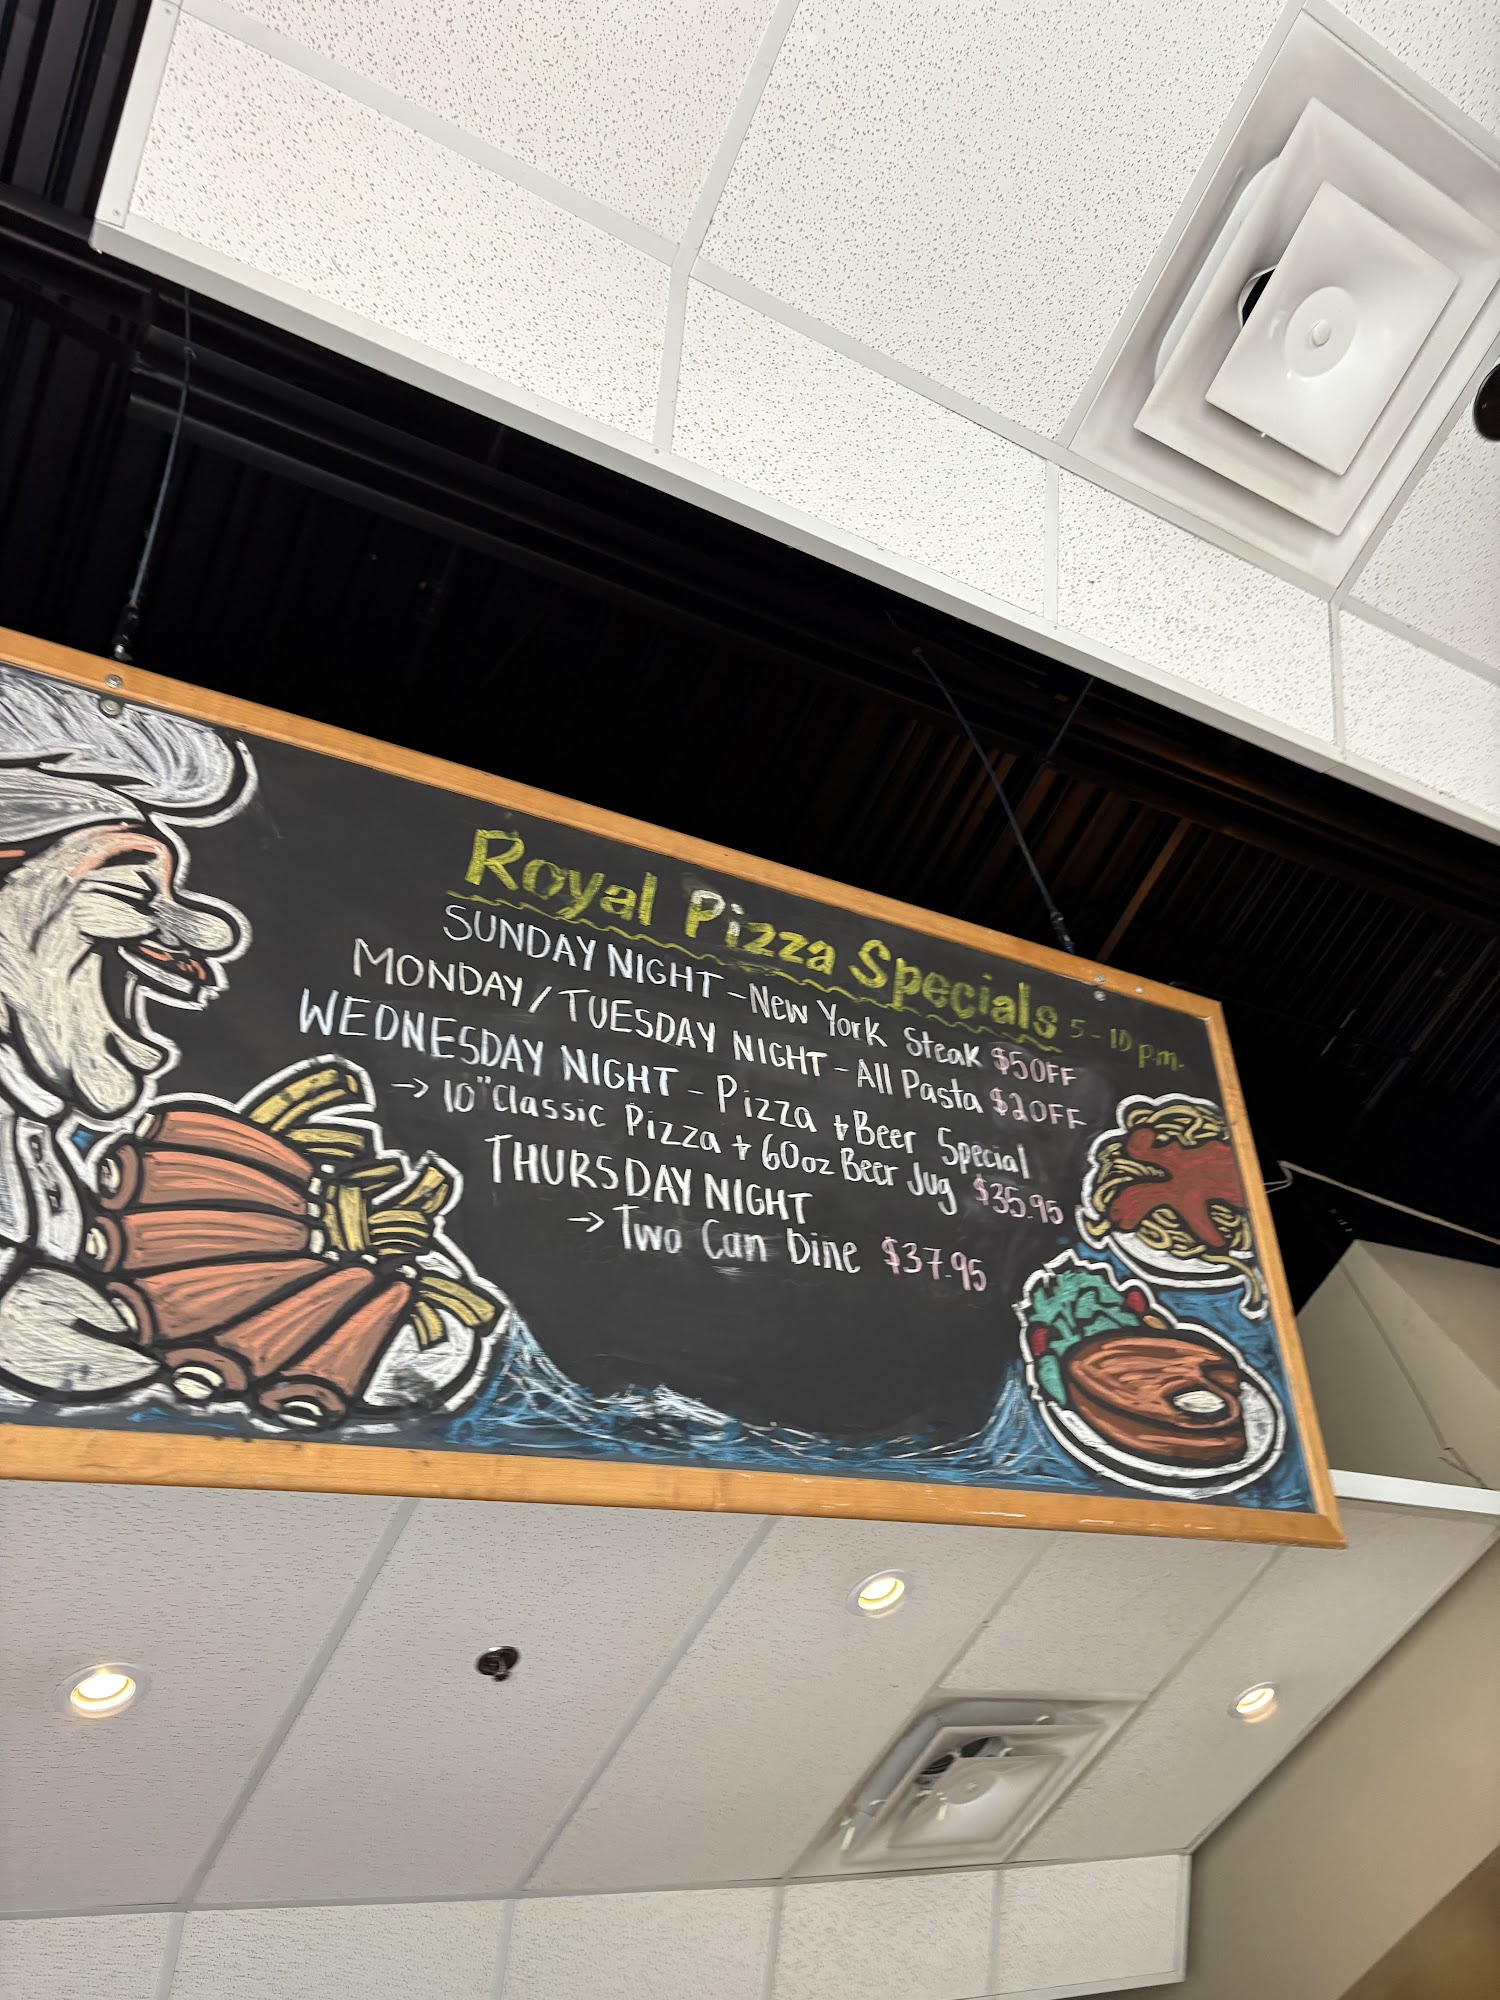 Royal Pizza Specials 5-10 p.m.
SUNDAY NIGHT - New York Steak $5OFF
MONDAY/TUESDAY NIGHT - All Pasta $2OFF
WEDNESDAY NIGHT - Pizza + Beer Special
→ 10" Classic Pizza + 60oz Beer Jug $35.95
THURSDAY NIGHT
→ Two Can Dine $37.95